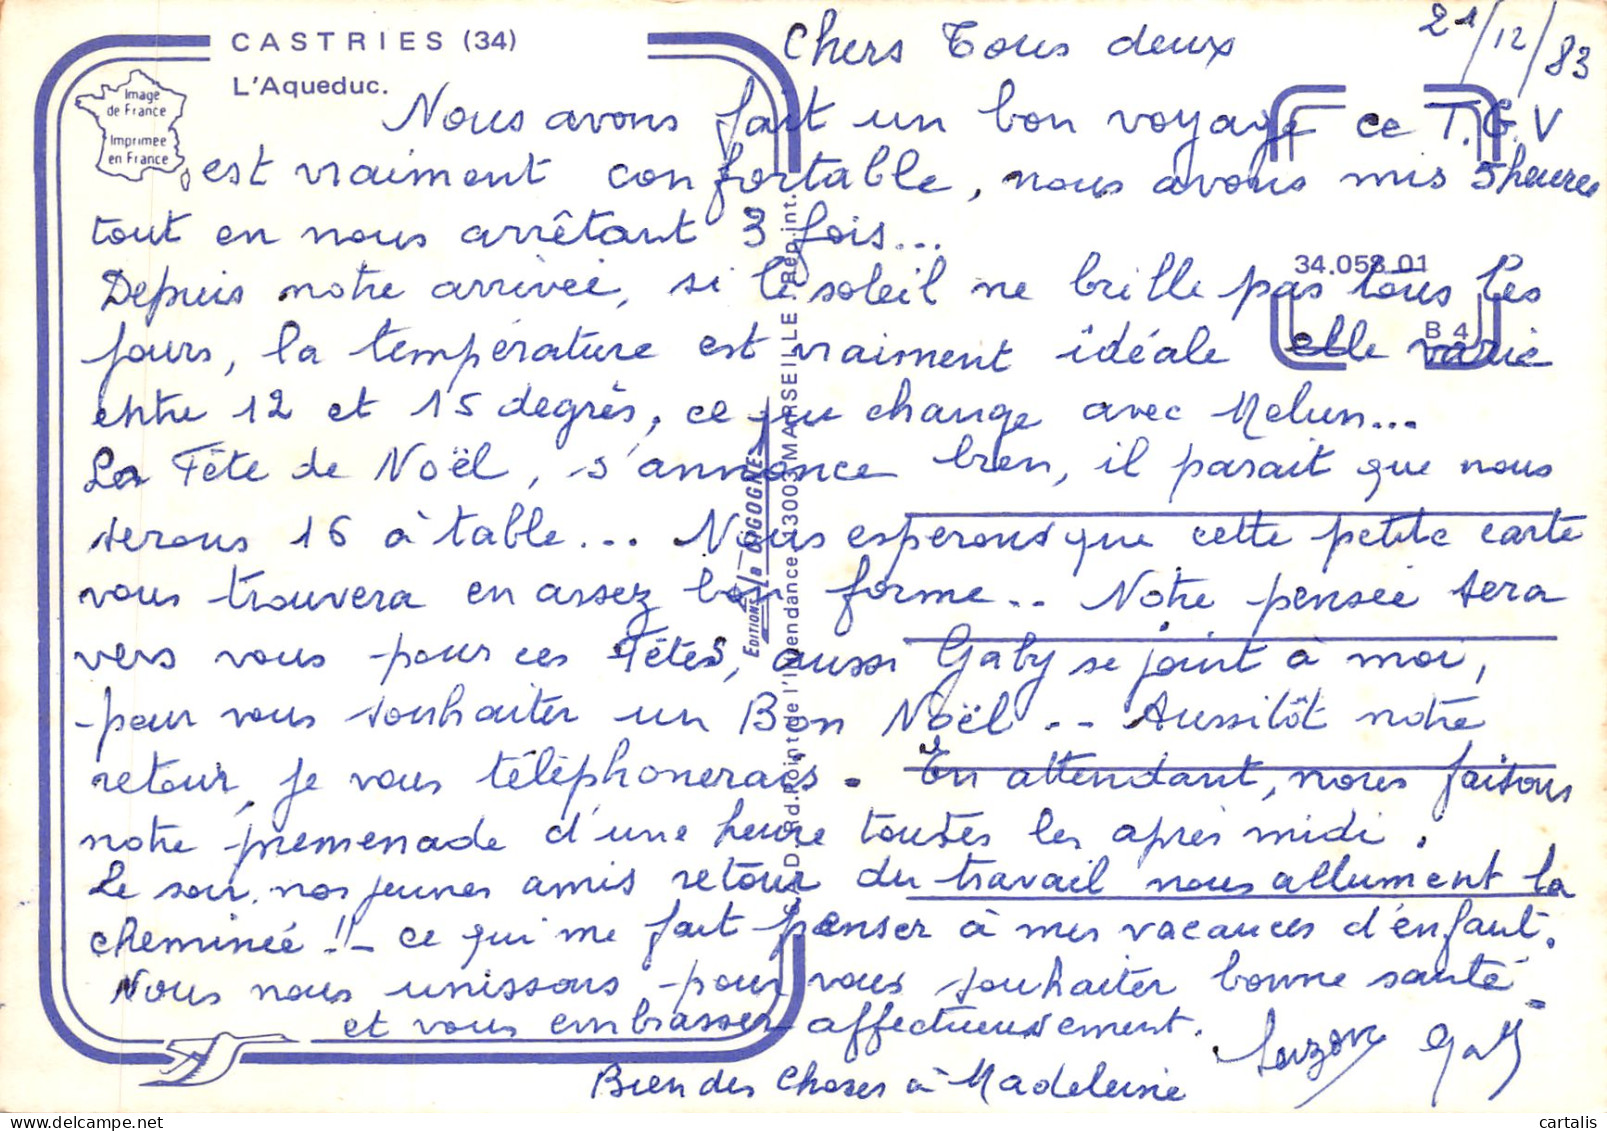 CASTRIES (34)
L'Aqueduc.
Image
de France
Imprimée
en France
21/12/83
Chers Tous deux
Nous avons fait un bon voyage ce T.G.V
est vraiment confortable, nous avons mis 5 heures
tout en nous arrêtant 3 fois...
Depuis notre arrivée, si le soleil ne brille pas tous les
jours, la température est vraiment idéale elle varie
entre 12 et 15 degrés, ce qui change avec Melun...
La Fête de Noël, s'annonce bien, il parait que nous
serons 16 à table... Nous esperons que cette petite carte
vous trouvera en assez bon forme... Notre pensée sera
vers vous pour ces Fêtes, aussi Gaby se joint à moi,
pour vous souhaiter un Bon Noël... Aussitôt notre
retour, je vous téléphonerais. En attendant, nous faisons
notre promenade d'une heure toutes les après midi.
Le soir, nos jeunes amis retour du travail nous allument la
cheminée !! - ce qui me fait penser à mes vacances d'enfant.
Nous nous unissons pour vous souhaiter bonne santé
et vous embrasser affectueusement.
Suzon Gaby
Bien des choses à Madeleine
34.058.01
B 4
EDITIONS la CIGOGNE
Bd. Pointe de l'Intendance 13003 MARSEILLE Rep. int.
cartalis